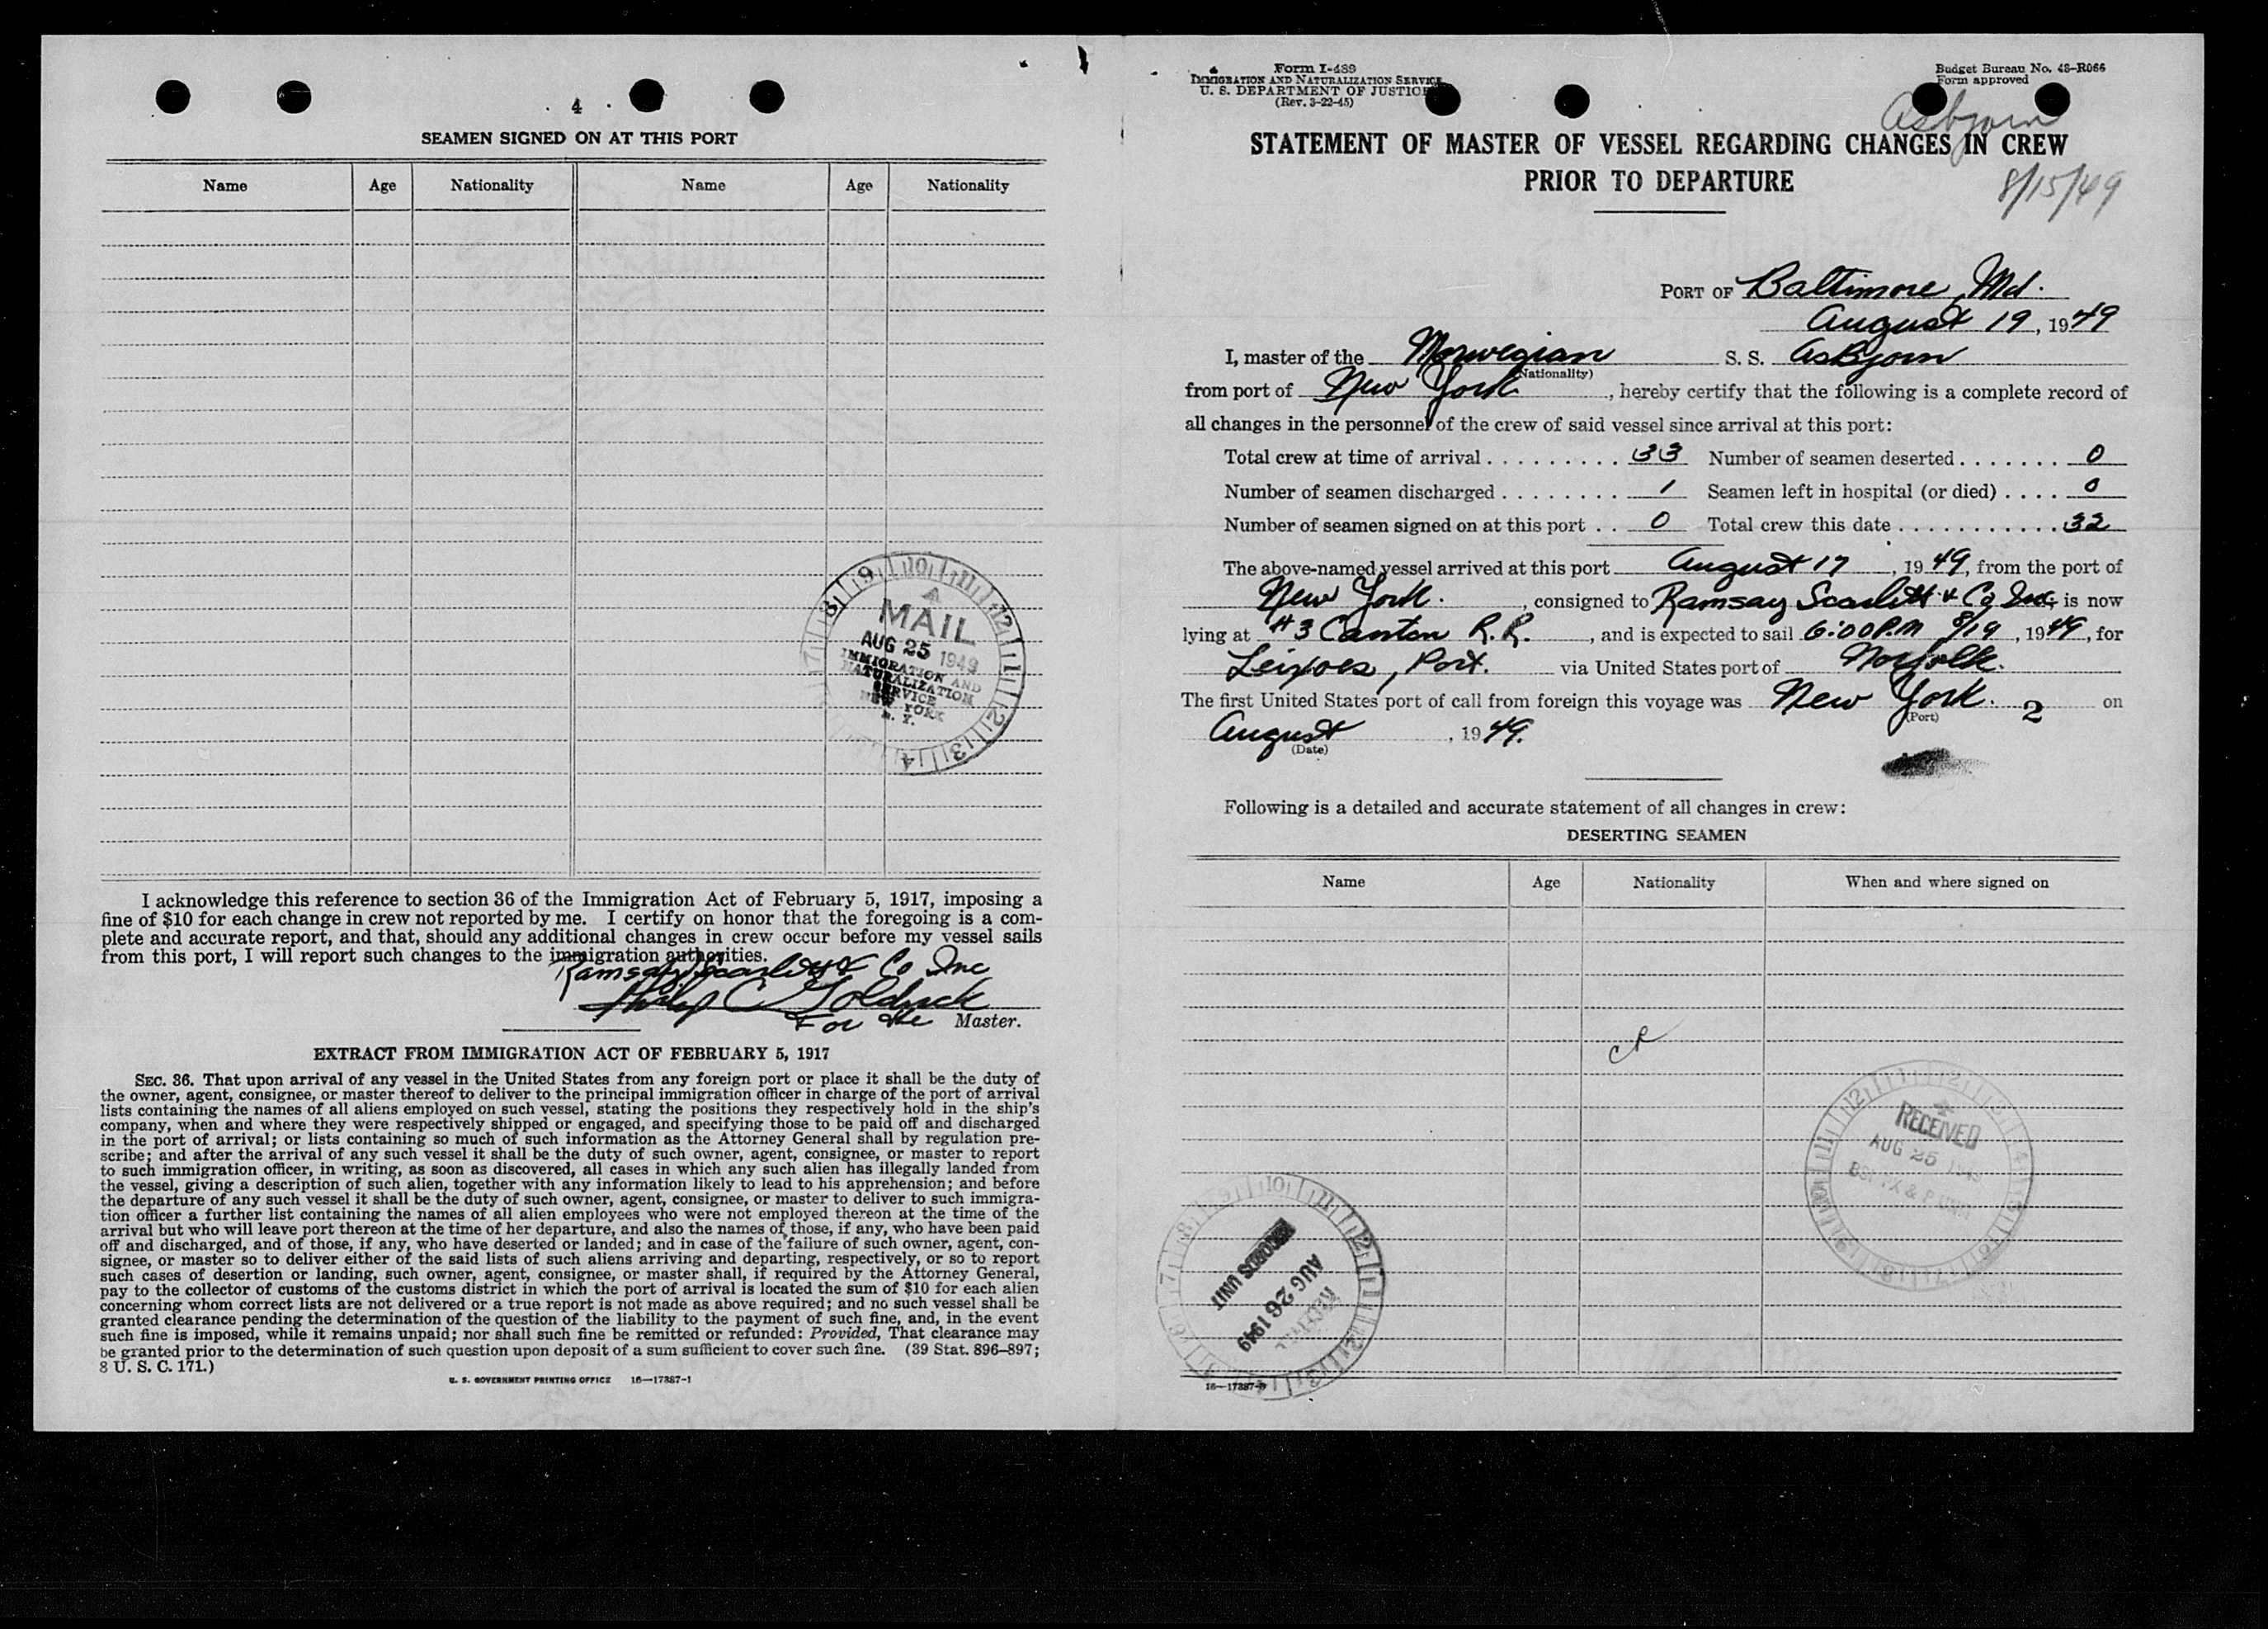 4
SEAMEN SIGNED ON AT THIS PORT
Name Age Nationality Name Age Nationality
MAIL
AUG 25 1949
IMMIGRATION AND
NATURALIZATION
SERVICE
NEW YORK
N. Y.
I acknowledge this reference to section 36 of the Immigration Act of February 5, 1917, imposing a
fine of $10 for each change in crew not reported by me. I certify on honor that the foregoing is a com-
plete and accurate report, and that, should any additional changes in crew occur before my vessel sails
from this port, I will report such changes to the immigration authorities.
Ramsay Scarlett & Co Inc
Philip C
For the Master.
EXTRACT FROM IMMIGRATION ACT OF FEBRUARY 5, 1917
SEC. 36. That upon arrival of any vessel in the United States from any foreign port or place it shall be the duty of
the owner, agent, consignee, or master thereof to deliver to the principal immigration officer in charge of the port of arrival
lists containing the names of all aliens employed on such vessel, stating the positions they respectively hold in the ship's
company, when and where they were respectively shipped or engaged, and specifying those to be paid off and discharged
in the port of arrival; or lists containing so much of such information as the Attorney General shall by regulation pre-
scribe; and after the arrival of any such vessel it shall be the duty of such owner, agent, consignee, or master to report
to such immigration officer, in writing, as soon as discovered, all cases in which any such alien has illegally landed from
the vessel, giving a description of such alien, together with any information likely to lead to his apprehension; and before
the departure of any such vessel it shall be the duty of such owner, agent, consignee, or master to deliver to such immigra-
tion officer a further list containing the names of all alien employees who were not employed thereon at the time of the
arrival but who will leave port thereon at the time of her departure, and also the names of those, if any, who have been paid
off and discharged, and of those, if any, who have deserted or landed; and in case of the failure of such owner, agent, con-
signee, or master so to deliver either of the said lists of such aliens arriving and departing, respectively, or so to report
such cases of desertion or landing, such owner, agent, consignee, or master shall, if required by the Attorney General,
pay to the collector of customs of the customs district in which the port of arrival is located the sum of $10 for each alien
concerning whom correct lists are not delivered or a true report is not made as above required; and no such vessel shall be
granted clearance pending the determination of the question of the liability to the payment of such fine, and, in the event
such fine is imposed, while it remains unpaid; nor shall such fine be remitted or refunded: Provided, That clearance may
be granted prior to the determination of such question upon deposit of a sum sufficient to cover such fine. (39 Stat. 896–897;
8 U. S. C. 171.)
U. S. GOVERNMENT PRINTING OFFICE 16—17387-1
Form I-489
IMMIGRATION AND NATURALIZATION SERVICE
U. S. DEPARTMENT OF JUSTICE
(Rev. 3-22-45)
Budget Bureau No. 43-R066
Form approved
Asbjorn
STATEMENT OF MASTER OF VESSEL REGARDING CHANGES IN CREW
PRIOR TO DEPARTURE
8/15/49
PORT OF Baltimore, Md.
August 19, 1949
I, master of the Norwegian S. S. Asbjorn
(Nationality)
from port of New York, hereby certify that the following is a complete record of
all changes in the personnel of the crew of said vessel since arrival at this port:
Total crew at time of arrival . . . . . . . . . 33 Number of seamen deserted . . . . . . . 0
Number of seamen discharged . . . . . . . . 1 Seamen left in hospital (or died) . . . . 0
Number of seamen signed on at this port . . 0 Total crew this date . . . . . . . . . . . 32
The above-named vessel arrived at this port August 17, 1949, from the port of
New York., consigned to Ramsay Scarlett & Co Inc, is now
lying at #3 Canton R.R., and is expected to sail 6:00 P.M 8/19, 1949, for
Leixoes, Port. via United States port of Norfolk.
The first United States port of call from foreign this voyage was New York. 2 on
(Port)
August, 1949.
(Date)
Following is a detailed and accurate statement of all changes in crew:
DESERTING SEAMEN
Name Age Nationality When and where signed on
CR
RECEIVED
AUG 25 1949
RECORDS UNIT
AUG 26 1949
16—17387-1